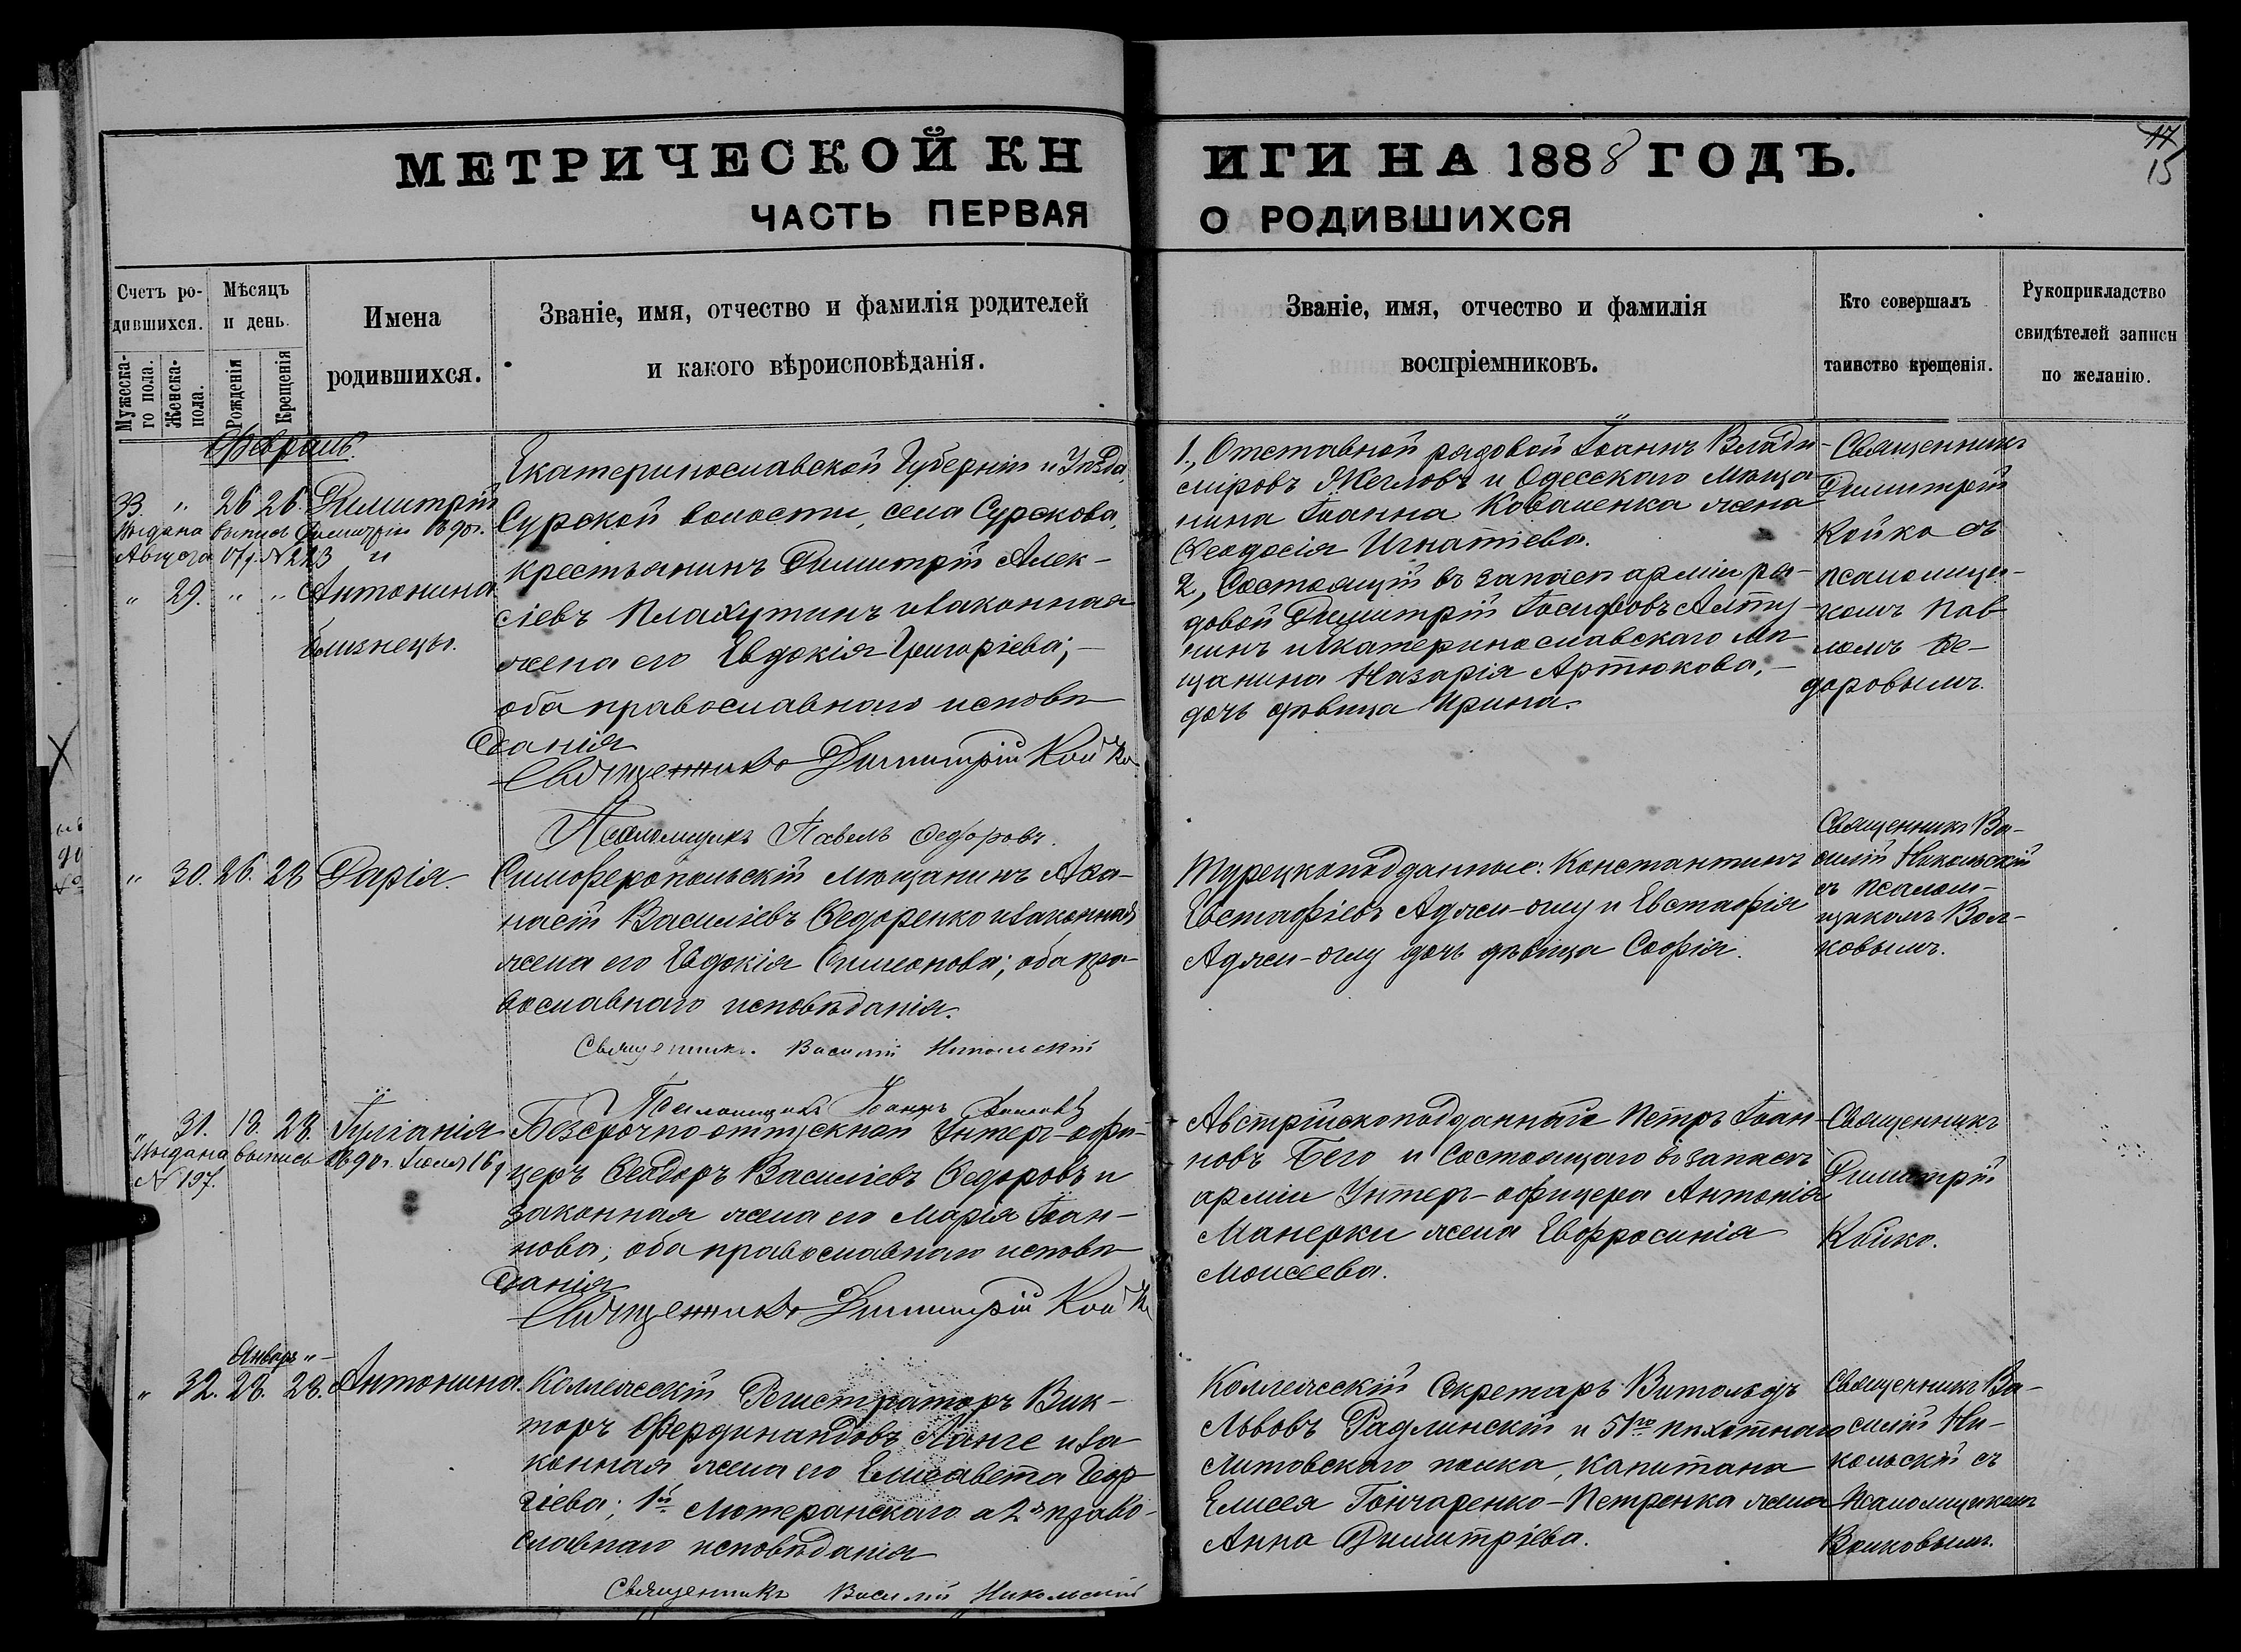 МЕТРИЧЕСКОЙ КНИГИ НА 1888 ГОДЪ.
17
15
ЧАСТЬ ПЕРВАЯ О РОДИВШИХСЯ
Счетъ родившихся.
Мужескаго пола.
Женска- пола.
Мѣсяцъ и день.
Рожденія
Крещенія
Имена
родившихся.
Званіе, имя, отчество и фамилія родителей
и какого вѣроисповѣданія.
Званіе, имя, отчество и фамилія
воспріемниковъ.
Кто совершалъ
таинство крещенія.
Рукоприкладство
свидѣтелей записи
по желанію.
Февраль.
33. " 26 26. Димитрій
Выдана выпись Димитрію 1890г.
Августа 07д. №223 и
" 29. " " Антонина
близнецы.
Екатеринославской Губерніи и Уѣзда,
Сурской волости, села Сурскова,
крестьянинъ Димитрій Алек-
сіевъ Плахутинъ и законная
жена его Евдокія Григоріева;
оба православнаго исповѣ-
данія
Священникъ Димитрій Койко
Псаломщикъ Павелъ Федоровъ.
1., Отставной рядовой Іоаннъ Влади-
міровъ Жегловъ и Одесскаго Мѣща-
нина Іоанна Коваленка жена
Феодосія Игнатіева.
2., Состоящій въ запасѣ арміи ря-
довой Димитрій Іосифовъ Алту-
нинъ и Екатеринославскаго мѣ-
щанина Назарія Артюкова,
дочь дѣвица Ирина.
Священникъ
Димитрій
Койко съ
псаломщи-
комъ Пав-
ломъ Фе-
доровымъ.
" 30. 26. 28 Дарія.
Симферопольскій мѣщанинъ Афа-
насій Василіевъ Федоренко и законная
жена его Евдокія Симонова; оба пра-
вославнаго исповѣданія.
Священникъ Василій Никольскій
Псаломщикъ Іоаннъ
Турецкоподданные: Константинъ
Евстафіевъ Аджи-оглу и Евстафія
Аджи-оглу дочь дѣвица Софія.
Священникъ Ва-
силій Никольскій
съ псалом-
щикомъ Вол-
ковымъ.
" 31. 18. 28. Іуліанія
Выдана выпись 1890г. Іюля 16д
№197.
Безсрочно-отпускной Унтеръ-офи-
церъ Феодоръ Василіевъ Федоровъ и
законная жена его Марія Іоан-
нова, оба православнаго исповѣ-
данія
Священникъ Димитрій Койко
Австрійскоподданный Петръ Іоан-
новъ Бего и Состоящаго въ запасѣ
арміи Унтеръ-офицера Антонія
Манерки жена Евфросинія
Моисеева.
Священникъ
Димитрій
Койко.
Январь "
" 32. 28. 28. Антонина.
Коллежскій Регистраторъ Вик-
торъ Фердинандовъ Ланге и за-
конная жена его Елисавета Геор-
гіева; 1й Лютеранскаго а 2я право-
славнаго исповѣданія
Священникъ Василій Никольскій
Коллежскій Секретарь Витольдъ
Львовъ Радлинскій и 51го пѣхотнаго
Литовскаго полка, капитана
Елисея Гончаренко-Петренка жена
Анна Димитріева.
Священникъ Ва-
силій Ни-
кольскій съ
Псаломщикомъ
Волковымъ.